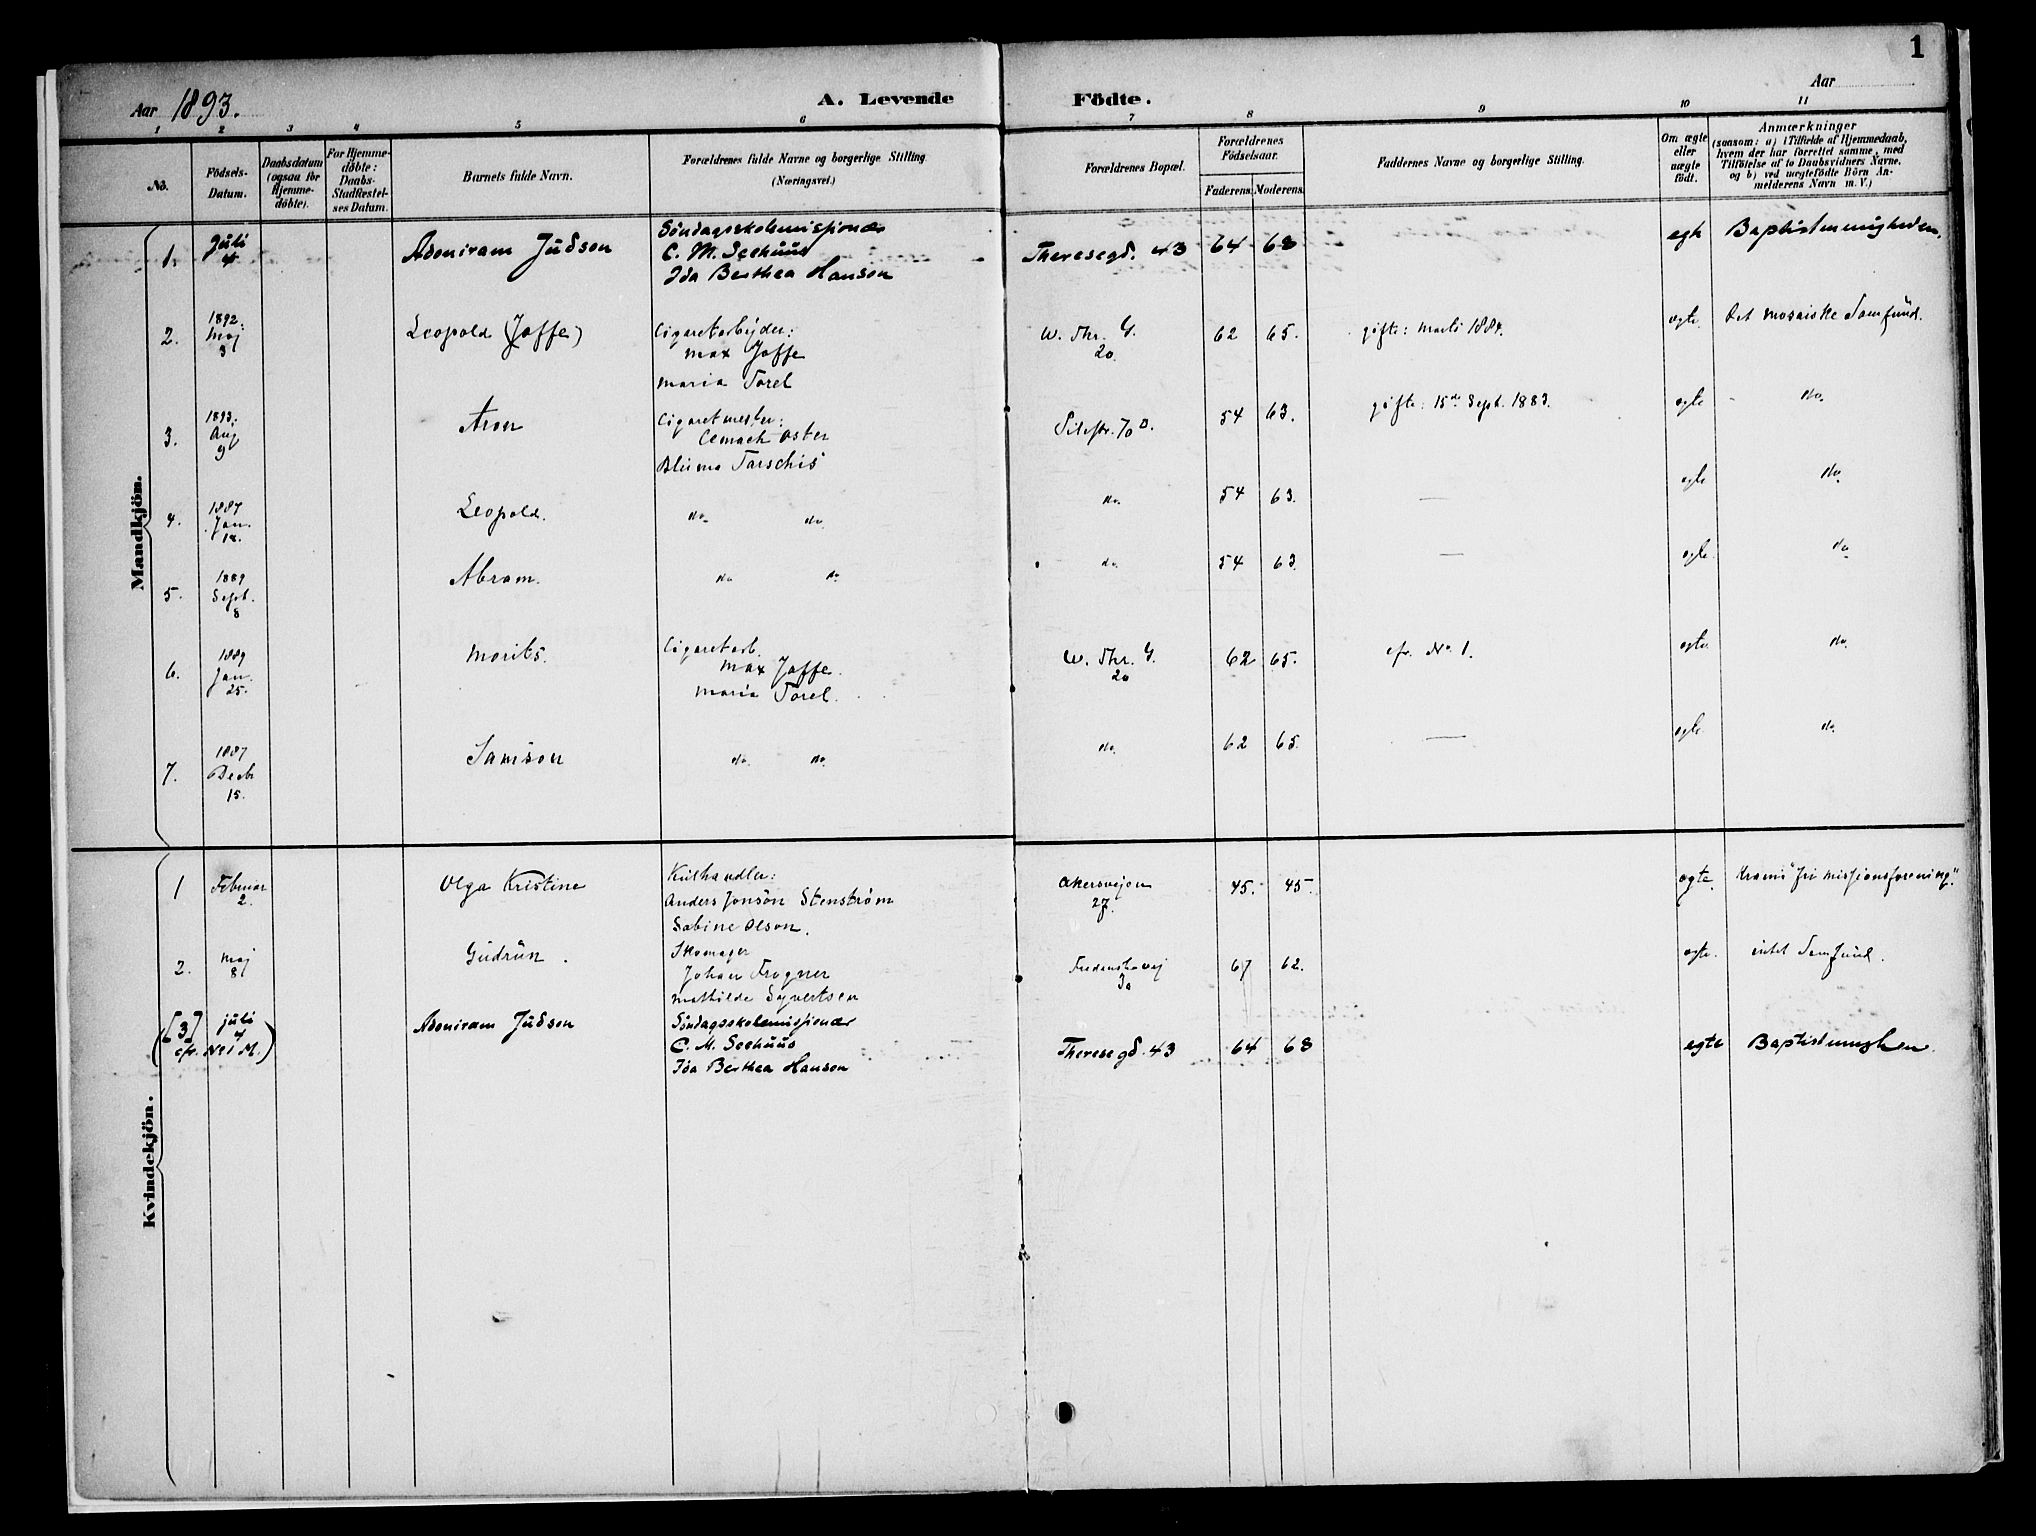 1
Aar 1893.
A. Levende Födte.
Aar
1 2 3 4 5 6 7 8 9 10 11
No.
Födsels-
Datum.
Daabsdatum
(ogsaa for
Hjemme-
döbte).
For Hjemme-
döbte:
Daabs-
Stadfæstel-
ses Datum.
Barnets fulde Navn.
Forældrenes fulde Navne og borgerlige Stilling
(Næringsvei.)
Forældrenes Bopæl.
Forældrenes
Födselsaar.
Faderens. Moderens.
Faddernes Navne og borgerlige Stilling.
Om ægte
eller
uægte
födt.
Anmærkninger
(saasom: a) i Tilfælde af Hjemmedaab,
hvem der har forrettet samme, med
Tilföielse af to Daabsvidners Navne,
og b) ved uægtefödte Börn An-
melderens Navn m. V.)
Mandkjön.
1. Juli 4 Adoniram Judson
Søndagsskolemissionær
C. M. Seehuus
Ida Berthea Hanson
Theresegd. 43 64 68 Baptistmenigheden.
2. 1892: Maj 3 Leopold (Joffe)
Cigaretarbejder:
Max Joffe
Maria Torel
W. Thr. G. 20. 62 65. gifte: Marts 188 ægte. Det mosaiske Samfund.
3. 1893: Aug 9 Aron
Cigaretmester:
Cemach Oster
Bluma Tarschis
54 63. gifte: 15de Sept. 1883. ægte do.
4. 1887 Jan. Leopold. do. do. do. 54 63. — egte do.
5. 1889 Sept. 8 Abram. do do do. 54 63. — egte. do.
6. 1889 Jan. 25. Morits.
Cigaretarb.
Max Joffe.
Maria Torel.
W. Thr. G. 20 62 65. cfr. No 1. egte. do.
7. 1887 Decbr 15. Samson do. do. do. 62 65. — egte. do.
Kvindekjön.
1 Februar 2. Olga Kristine
Kulhandler:
Anders Jonsön Stenström
Sabine Olson.
Akersvejen 27. 45. 45. ægte. Krami "fri missjonsforening".
2. Maj 8 Gudrun.
Skomager
Johan Frogner
Mathilde Syvertsen
67 62. ægte. intet Samfund.
([3] juli 4 cfr. No 1 M.) Adoniram Judson
Søndagsskolemissionær
C. M. Seehuus
Ida Berthea Hanson
Theresegd. 43 64 68 egte